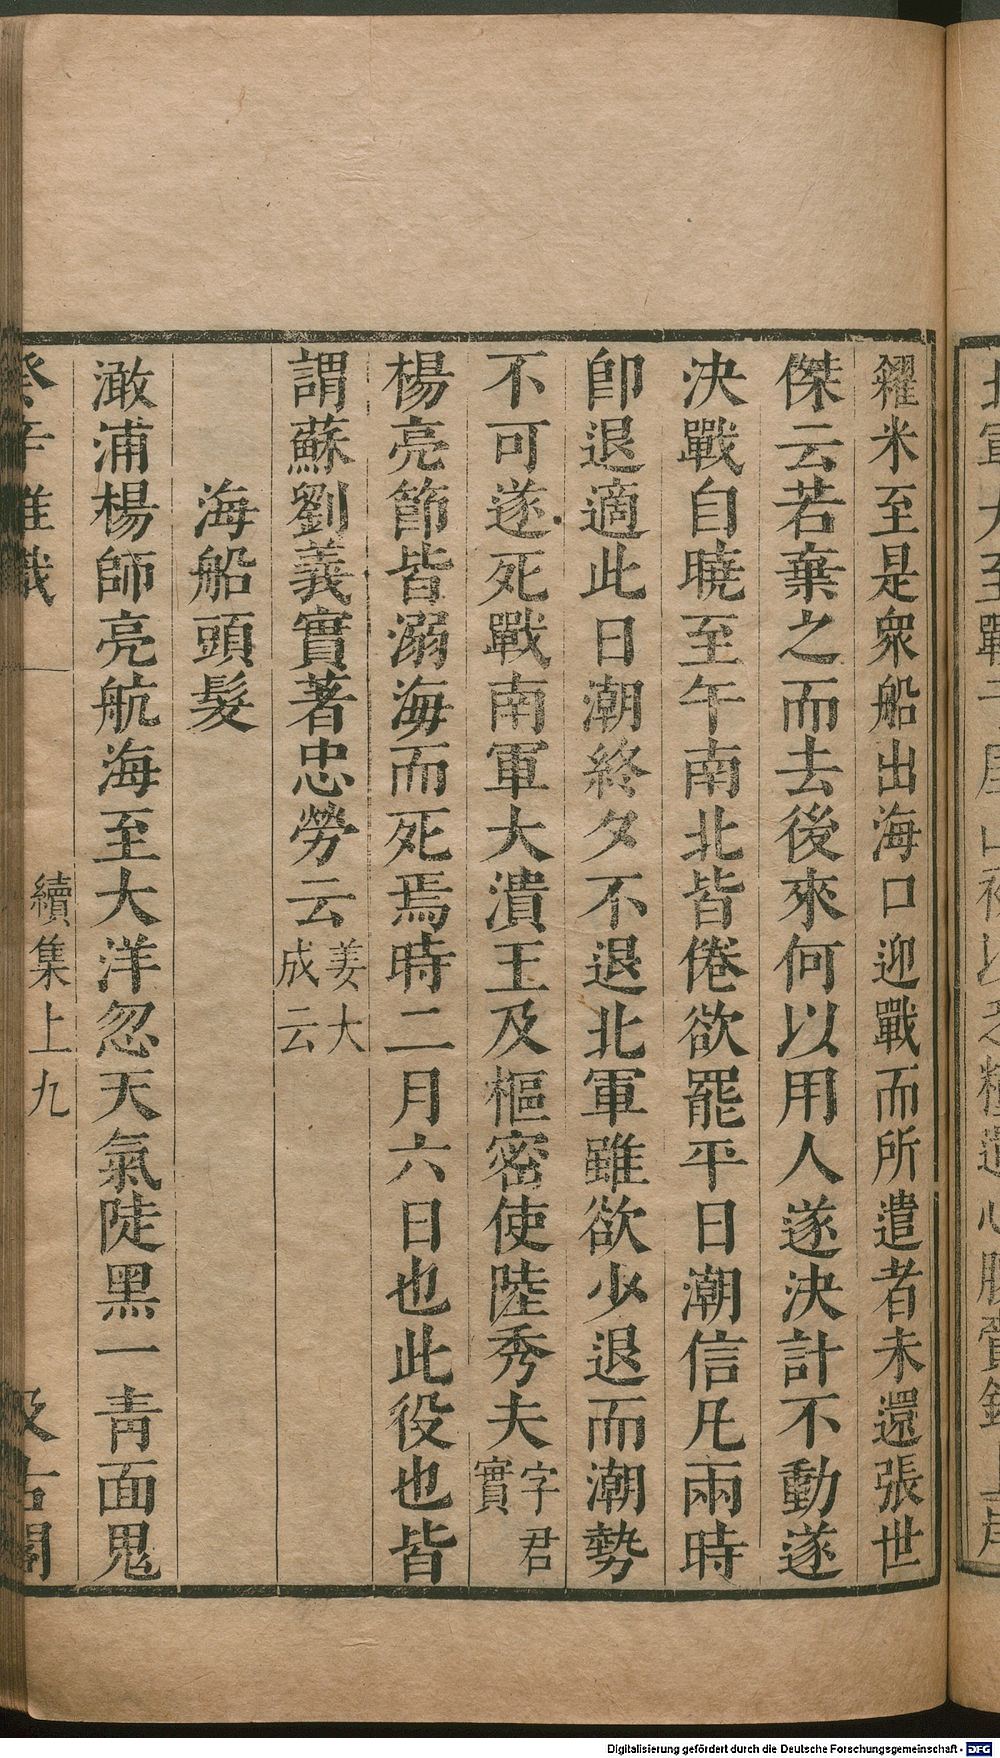 糴米至是衆船出海口迎戰而所遣者未還張世
傑云若棄之而去後來何以用人遂決計不動遂
決戰自曉至午南北皆倦欲罷平日潮信凡兩時
卽退適此日潮終夕不退北軍雖欲少退而潮勢
不可遂死戰南軍大潰王及樞密使陸秀夫字君實
楊亮節皆溺海而死焉時二月六日也此役也皆
謂蘇劉義實著忠勞云姜大成云
海船頭髮
澉浦楊師亮航海至大洋忽天氣陡黑一青面鬼
癸辛雜識 續集上 九 汲古閣
Digitalisierung gefördert durch die Deutsche Forschungsgemeinschaft - DFG